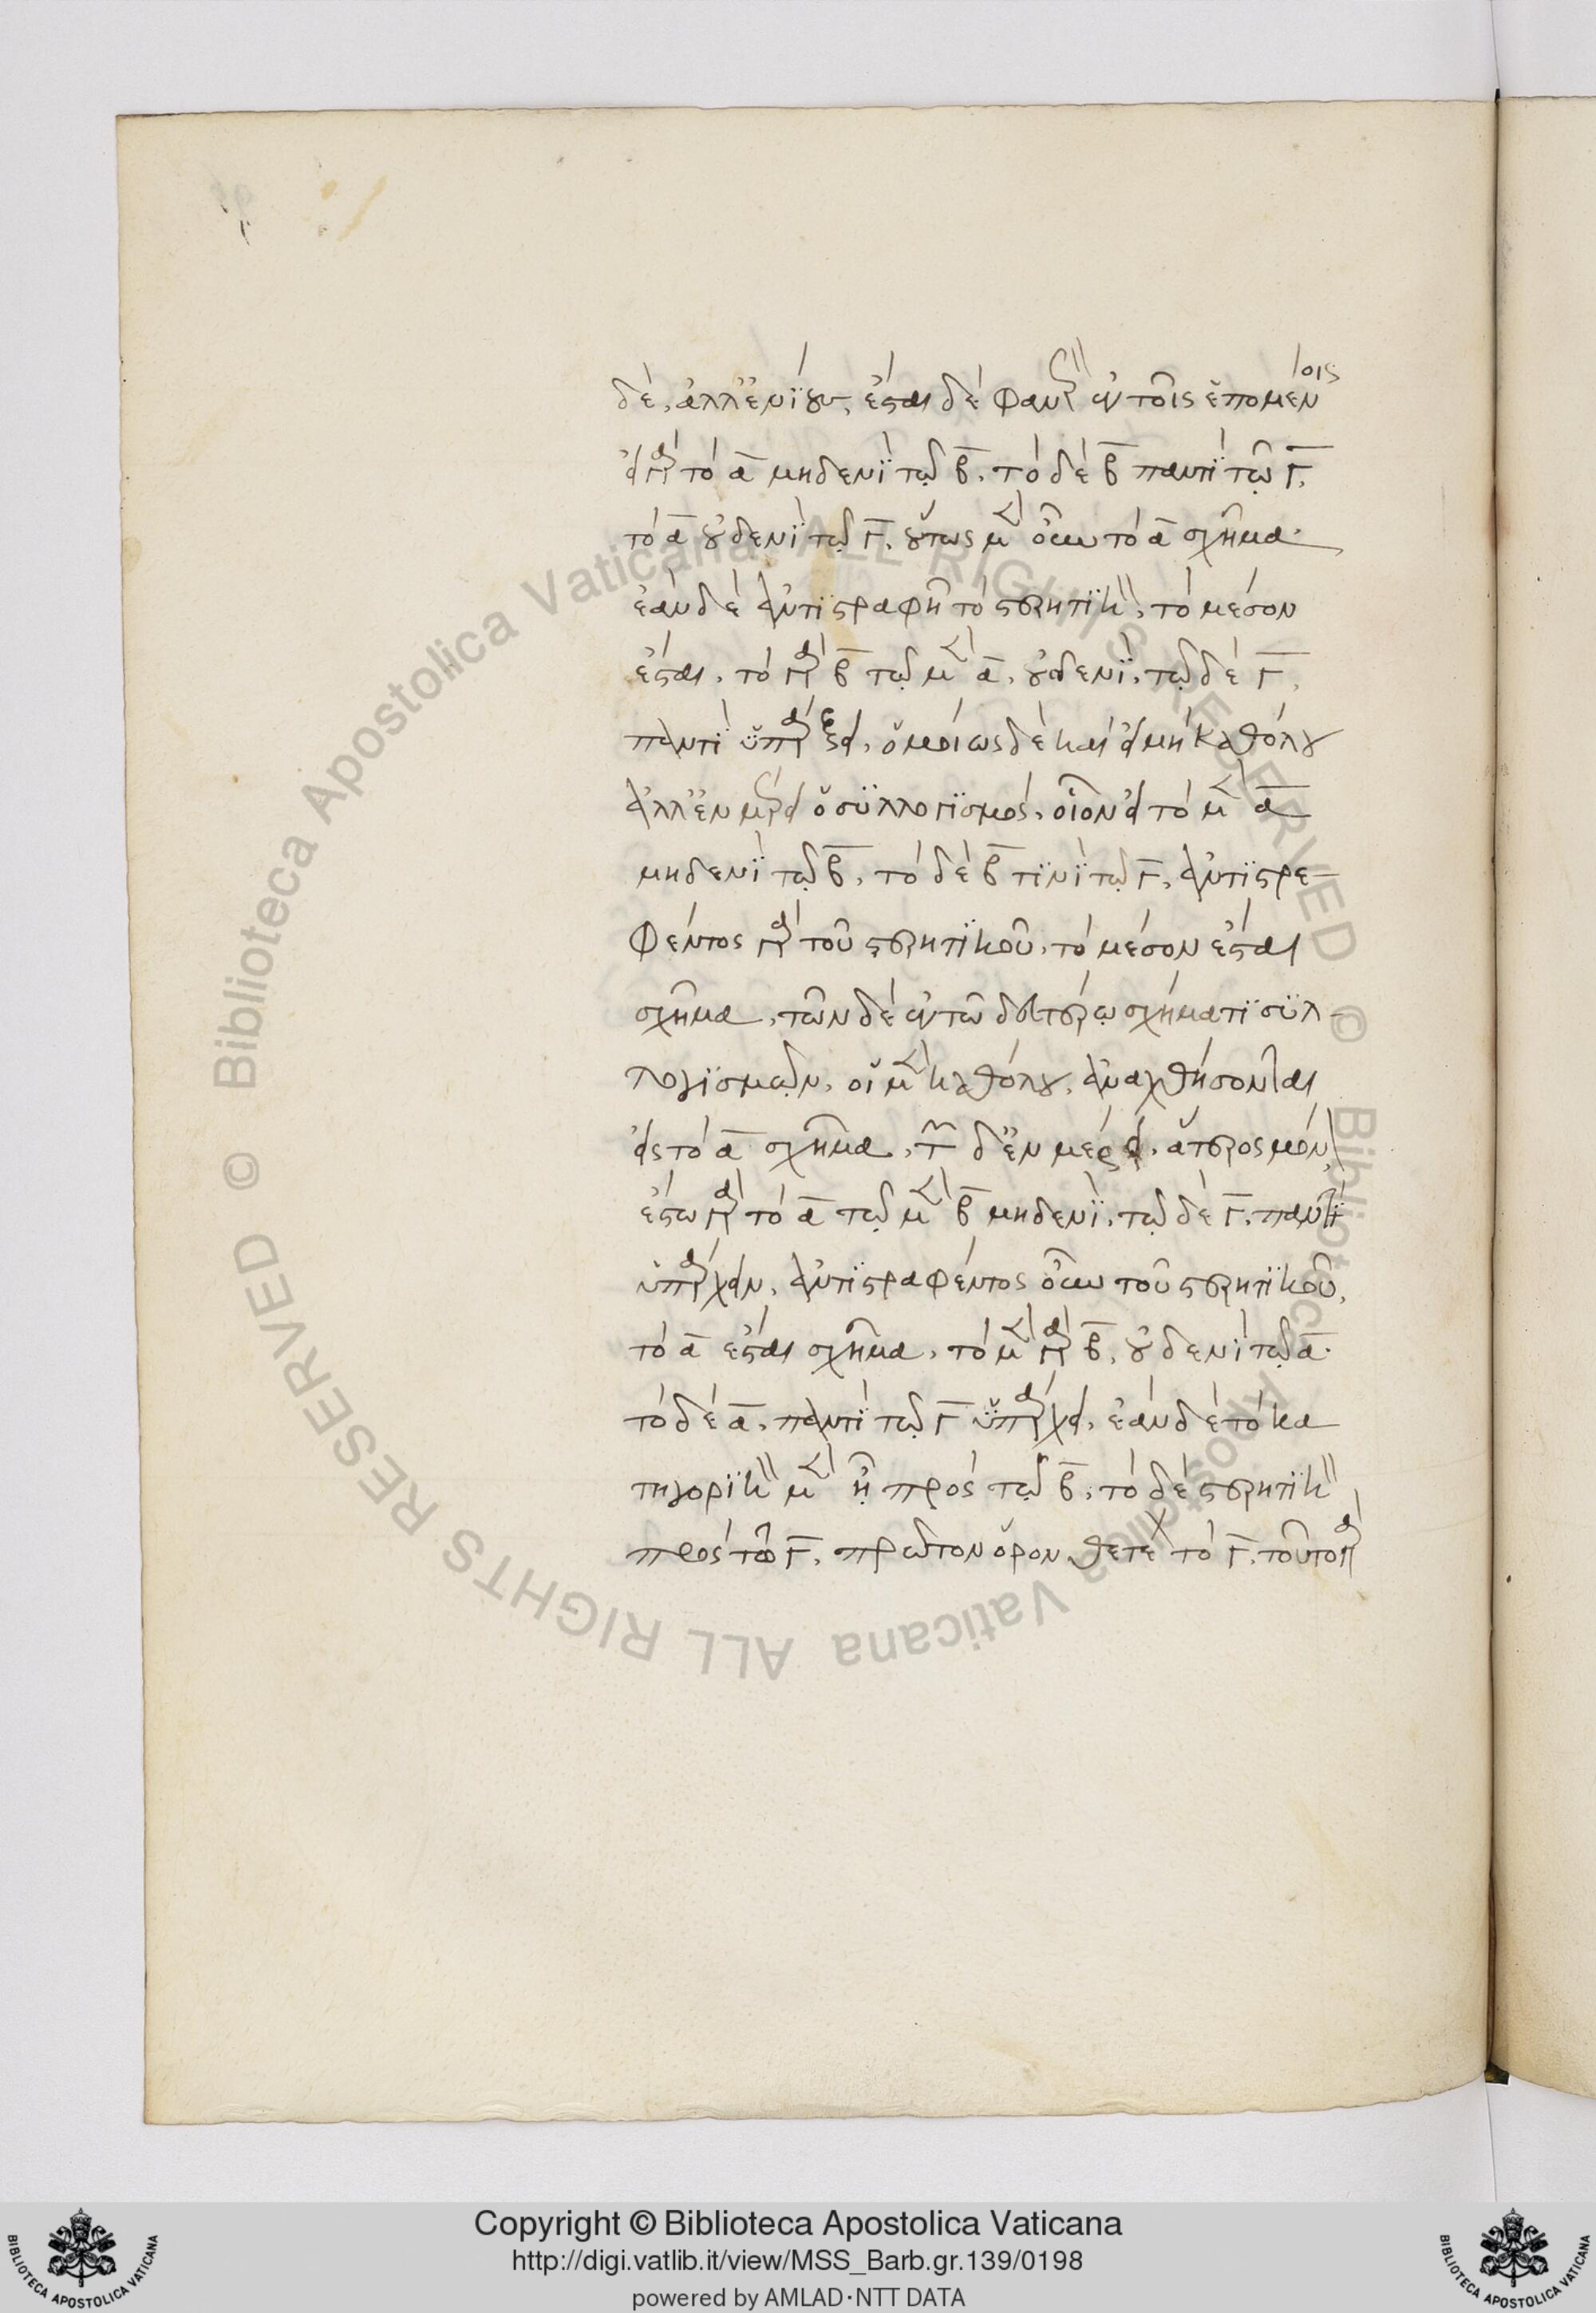 δέ, ἀλλ' ἐνίου, ἔσται δὲ φανερὸν ἐν τοῖς ἑπομένοις
εἰ γὰρ τὸ α̅ μηδενὶ τῷ β̅, τὸ δὲ β̅ παντὶ τῷ γ̅,
τὸ α̅ οὐδενὶ τῷ γ̅, οὕτως μὲν οὖν τὸ α̅ σχῆμα·
ἐὰν δὲ ἀντιστραφῇ τὸ στερητικὸν, τὸ μέσον
ἔσται, τὸ γὰρ β̅ τῷ μὲν α̅, οὐδενὶ, τῷ δὲ γ̅,
παντὶ ὑπάρξει, ὁμοίως δὲ καὶ εἰ μὴ καθόλου
ἀλλ' ἐν μέρει ὁ συλλογισμός, οἷον εἰ τὸ μὲν α̅
μηδενὶ τῷ β̅, τὸ δὲ β̅ τινὶ τῷ γ̅, ἀντιστρε-
φέντος γὰρ τοῦ στερητικοῦ, τὸ μέσον ἔσται
σχῆμα, τῶν δὲ ἐν τῶ δευτέρῳ σχήματι συλ-
λογισμῶν, οἱ μὲν καθόλου, ἀναχθήσονται
εἰς τὸ α̅ σχῆμα, τῶν δ' ἐν μέρει, ἅτερος μόνον
ἔστω γὰρ τὸ α̅ τῷ μὲν β̅ μηδενὶ, τῷ δὲ γ̅, παντὶ
ὑπάρχειν, ἀντιστραφέντος οὖν τοῦ στερητικοῦ,
τὸ α̅ ἔσται σχῆμα, τὸ μὲν γὰρ β̅, οὐδενὶ τῷ α̅·
τὸ δὲ α̅, παντὶ τῷ γ̅ ὑπάρχει, ἐὰν δὲ τὸ κα
τηγορικὸν μὲν ᾖ πρὸς τῷ β̅, τὸ δὲ στερητικὸν
πρὸς τῶ γ̅, πρῶτον ὅρον θετέον τὸ γ̅, τοῦτο γὰρ
Copyright © Biblioteca Apostolica Vaticana
http://digi.vatlib.it/view/MSS_Barb.gr.139/0198
powered by AMLAD·NTT DATA